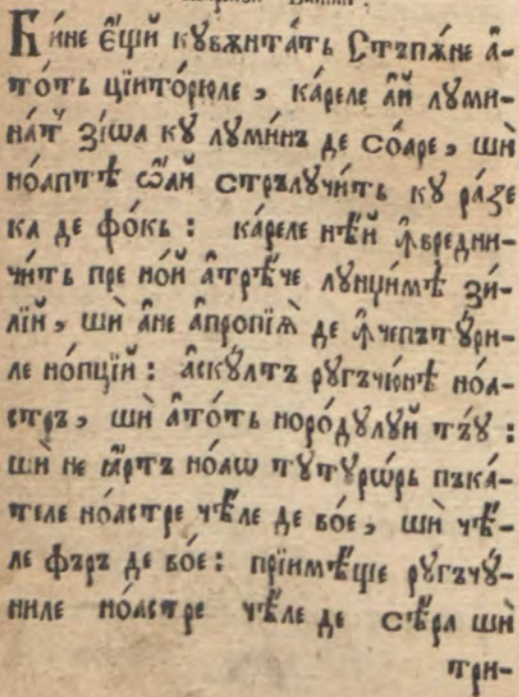 Бине є҆щй кꙋвѫнта́ть Стъпѫ́не а҆-
то́ть цїито́рюле, ка́реле а҆й лꙋми-
на́т зі́ѡа кꙋ лꙋми́нъ де со́аре, шѝ
но́аптѣ ѡ҆ай стрълꙋчи́ть кꙋ ра́зе
ка де фо́кь : ка́реле нѣ́й ꙟ҆вредни-
чи́ть пре но́й а҆трѣ́че лꙋнџи́мѣ зи́-
лїй, шѝ а҆не а҆пропїѧ̀ де ꙟ҆чепътꙋ́ри-
ле но́пцїй : а҆скꙋ́лтъ рꙋгъчю́нѣ но́а-
стръ, шѝ а҆то́ть норо́дꙋлꙋй тъ́ꙋ :
шѝ не ꙗ҆ртъ но́аѡ тꙋтꙋрѡ́рь пъка́-
теле но́астре чѣ́ле де во́е, шѝ чѣ́-
ле фъръ де во́е : прїимѣ́ще рꙋгъчꙋ́-
ниле но́астре чѣ́ле де сѣ́ра шѝ
три-